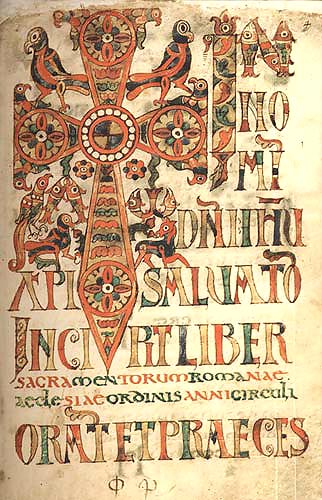 IN
NO
MĪ
DÑI IHŪ
XPI SALUATO
INCIPIT LIBER
SACRAMENTORUM ROMANAE
aeclesiae ORDINIS ANNI CIRCULI
ORAT ET PRAECES